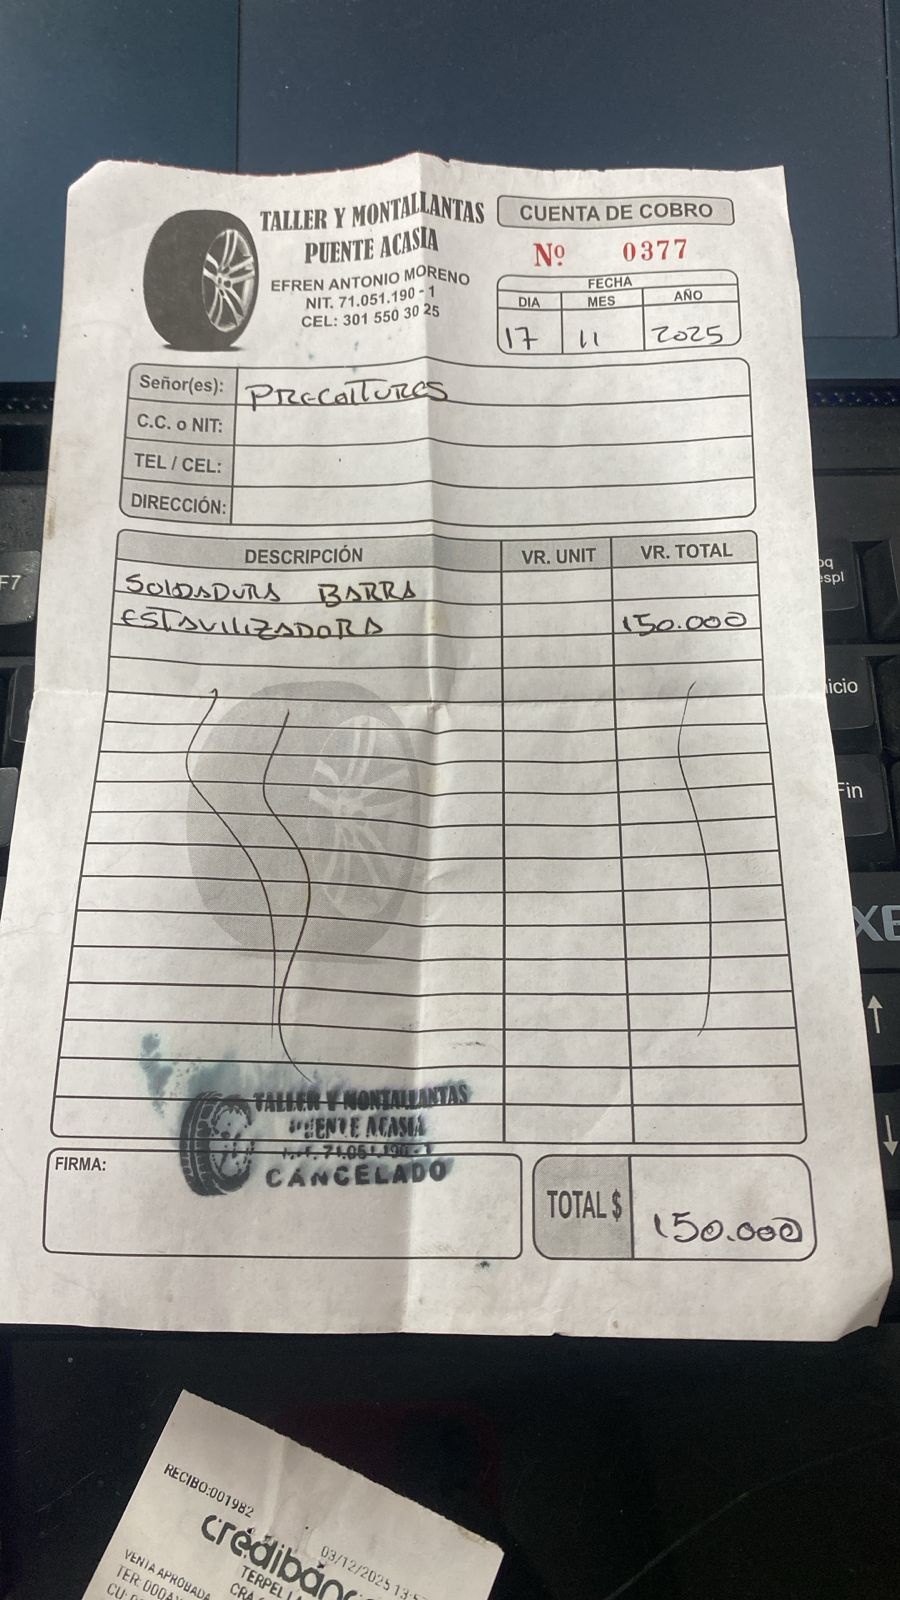 TALLER Y MONTALLANTAS
PUENTE ACASIA
EFREN ANTONIO MORENO
NIT. 71.051.190 - 1
CEL: 301 550 30 25
CUENTA DE COBRO
Nº 0377
FECHA
DIA MES AÑO
17 11 2025
Señor(es): PRECOLTURES
C.C. o NIT:
TEL / CEL:
DIRECCIÓN:
DESCRIPCIÓN VR. UNIT VR. TOTAL
SOLDADURA BARRA
ESTAVILIZADORA 150.000
TALLER Y MONTALLANTAS
PUENTE ACASIA
NIT. 71.051.190-1
CANCELADO
FIRMA:
TOTAL $ 150.000
RECIBO:001982
credibanco
03/12/2025
VENTA APROBADA
TERPEL
CRA
F7
Inicio
Fin